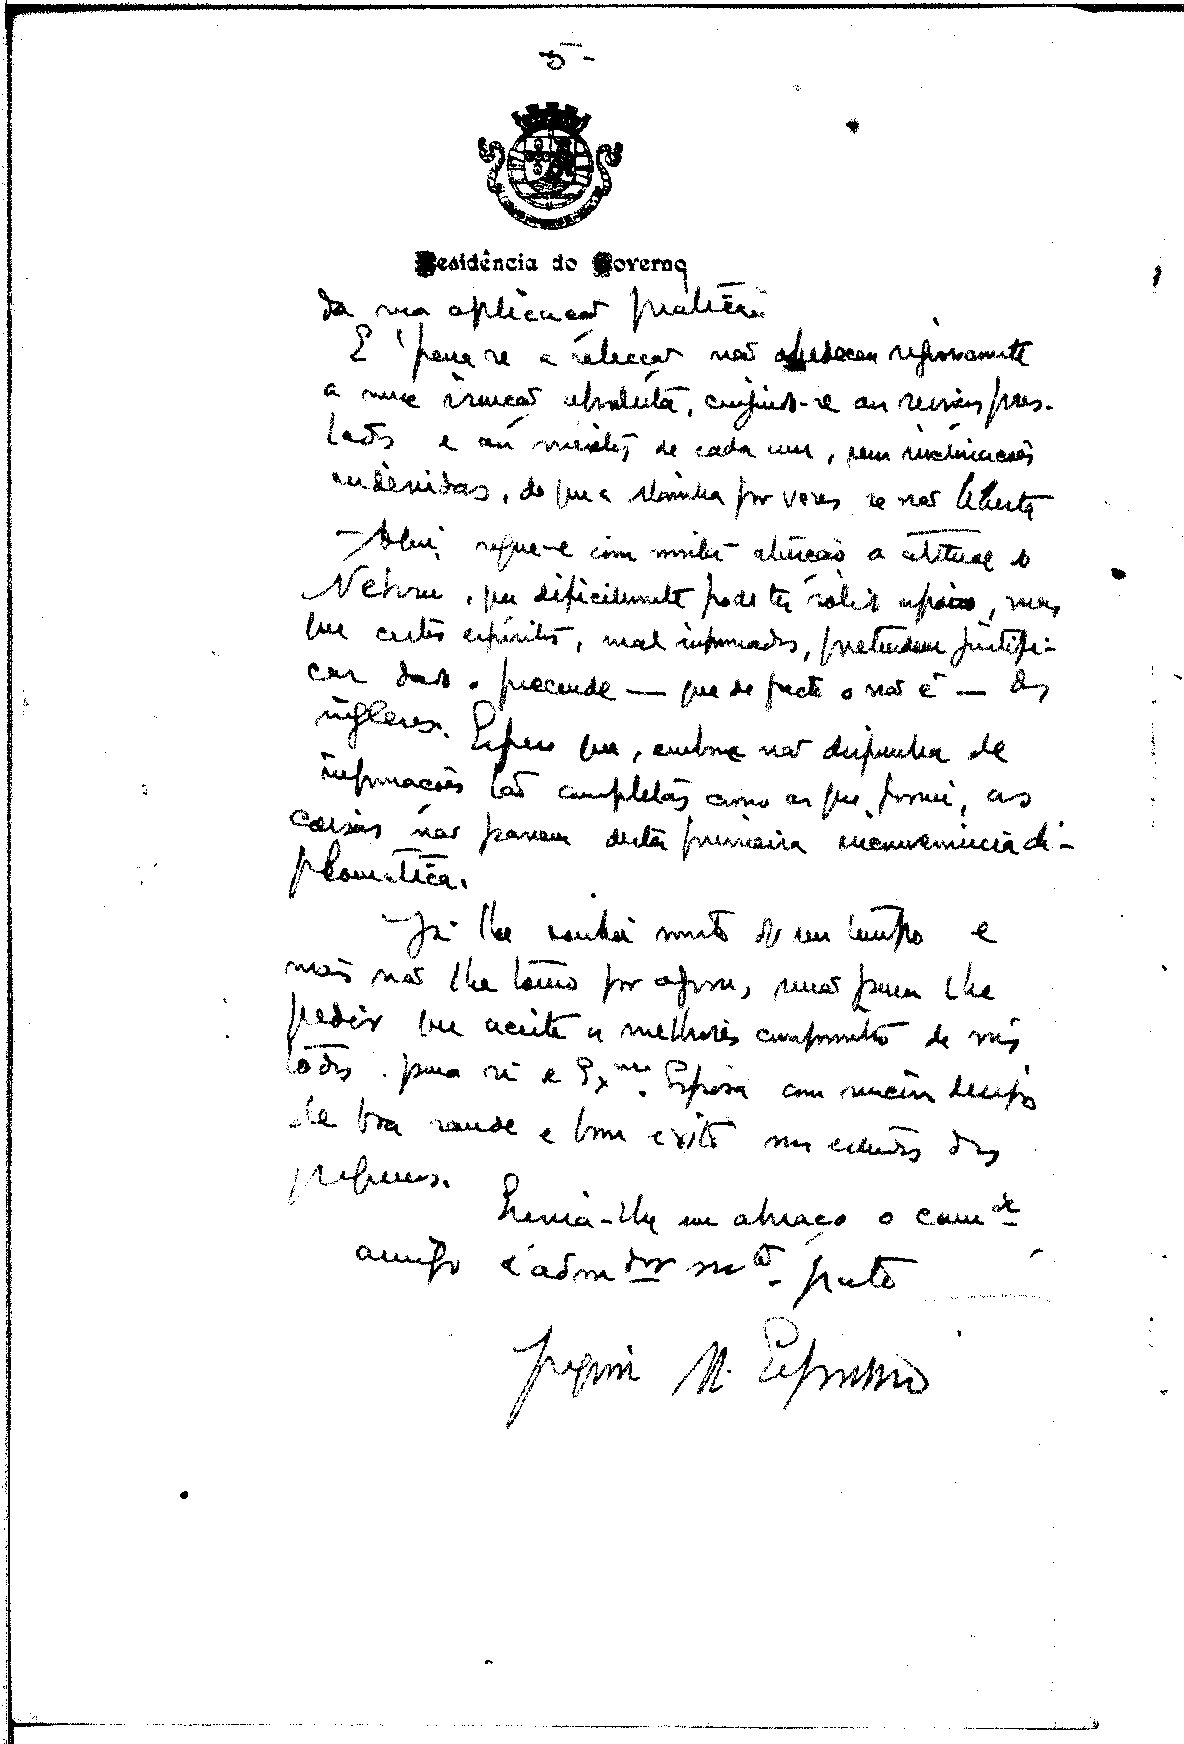 5 -
Residência do Governo
da sua aplicação prática
É pena se a selecção não obedecer rigorosamente
a uma isenção absoluta, cingindo-se aos serviços pres-
tados e aos méritos de cada um, sem inclinações
indevidas, de que a por vezes se não liberta
- Aqui, segue-se com muita atenção a atitude do
Nehru, que dificilmente pode ter sólido apoio, mas
que certos espíritos, mal informados, pretendem justifi-
car dado o precende — que de facto o não é — dos
ingleses. Espero que, embora não disponha de
informações tão completas como as que possui, as
coisas não passem desta primeira inconveniência di-
plomática.
Já lhe roubei muito do seu tempo e
mais não lhe tomo por agora, senão para lhe
pedir que aceite os melhores cumprimentos de nós
todos para si e Exma. Esposa com sincero desejo
de boa saude e bom exito nos estudos dos
pequenos.
Envia-lhe um abraço o cam.de
amigo e admdor mto. grato
Joaquim M. Esparteiro